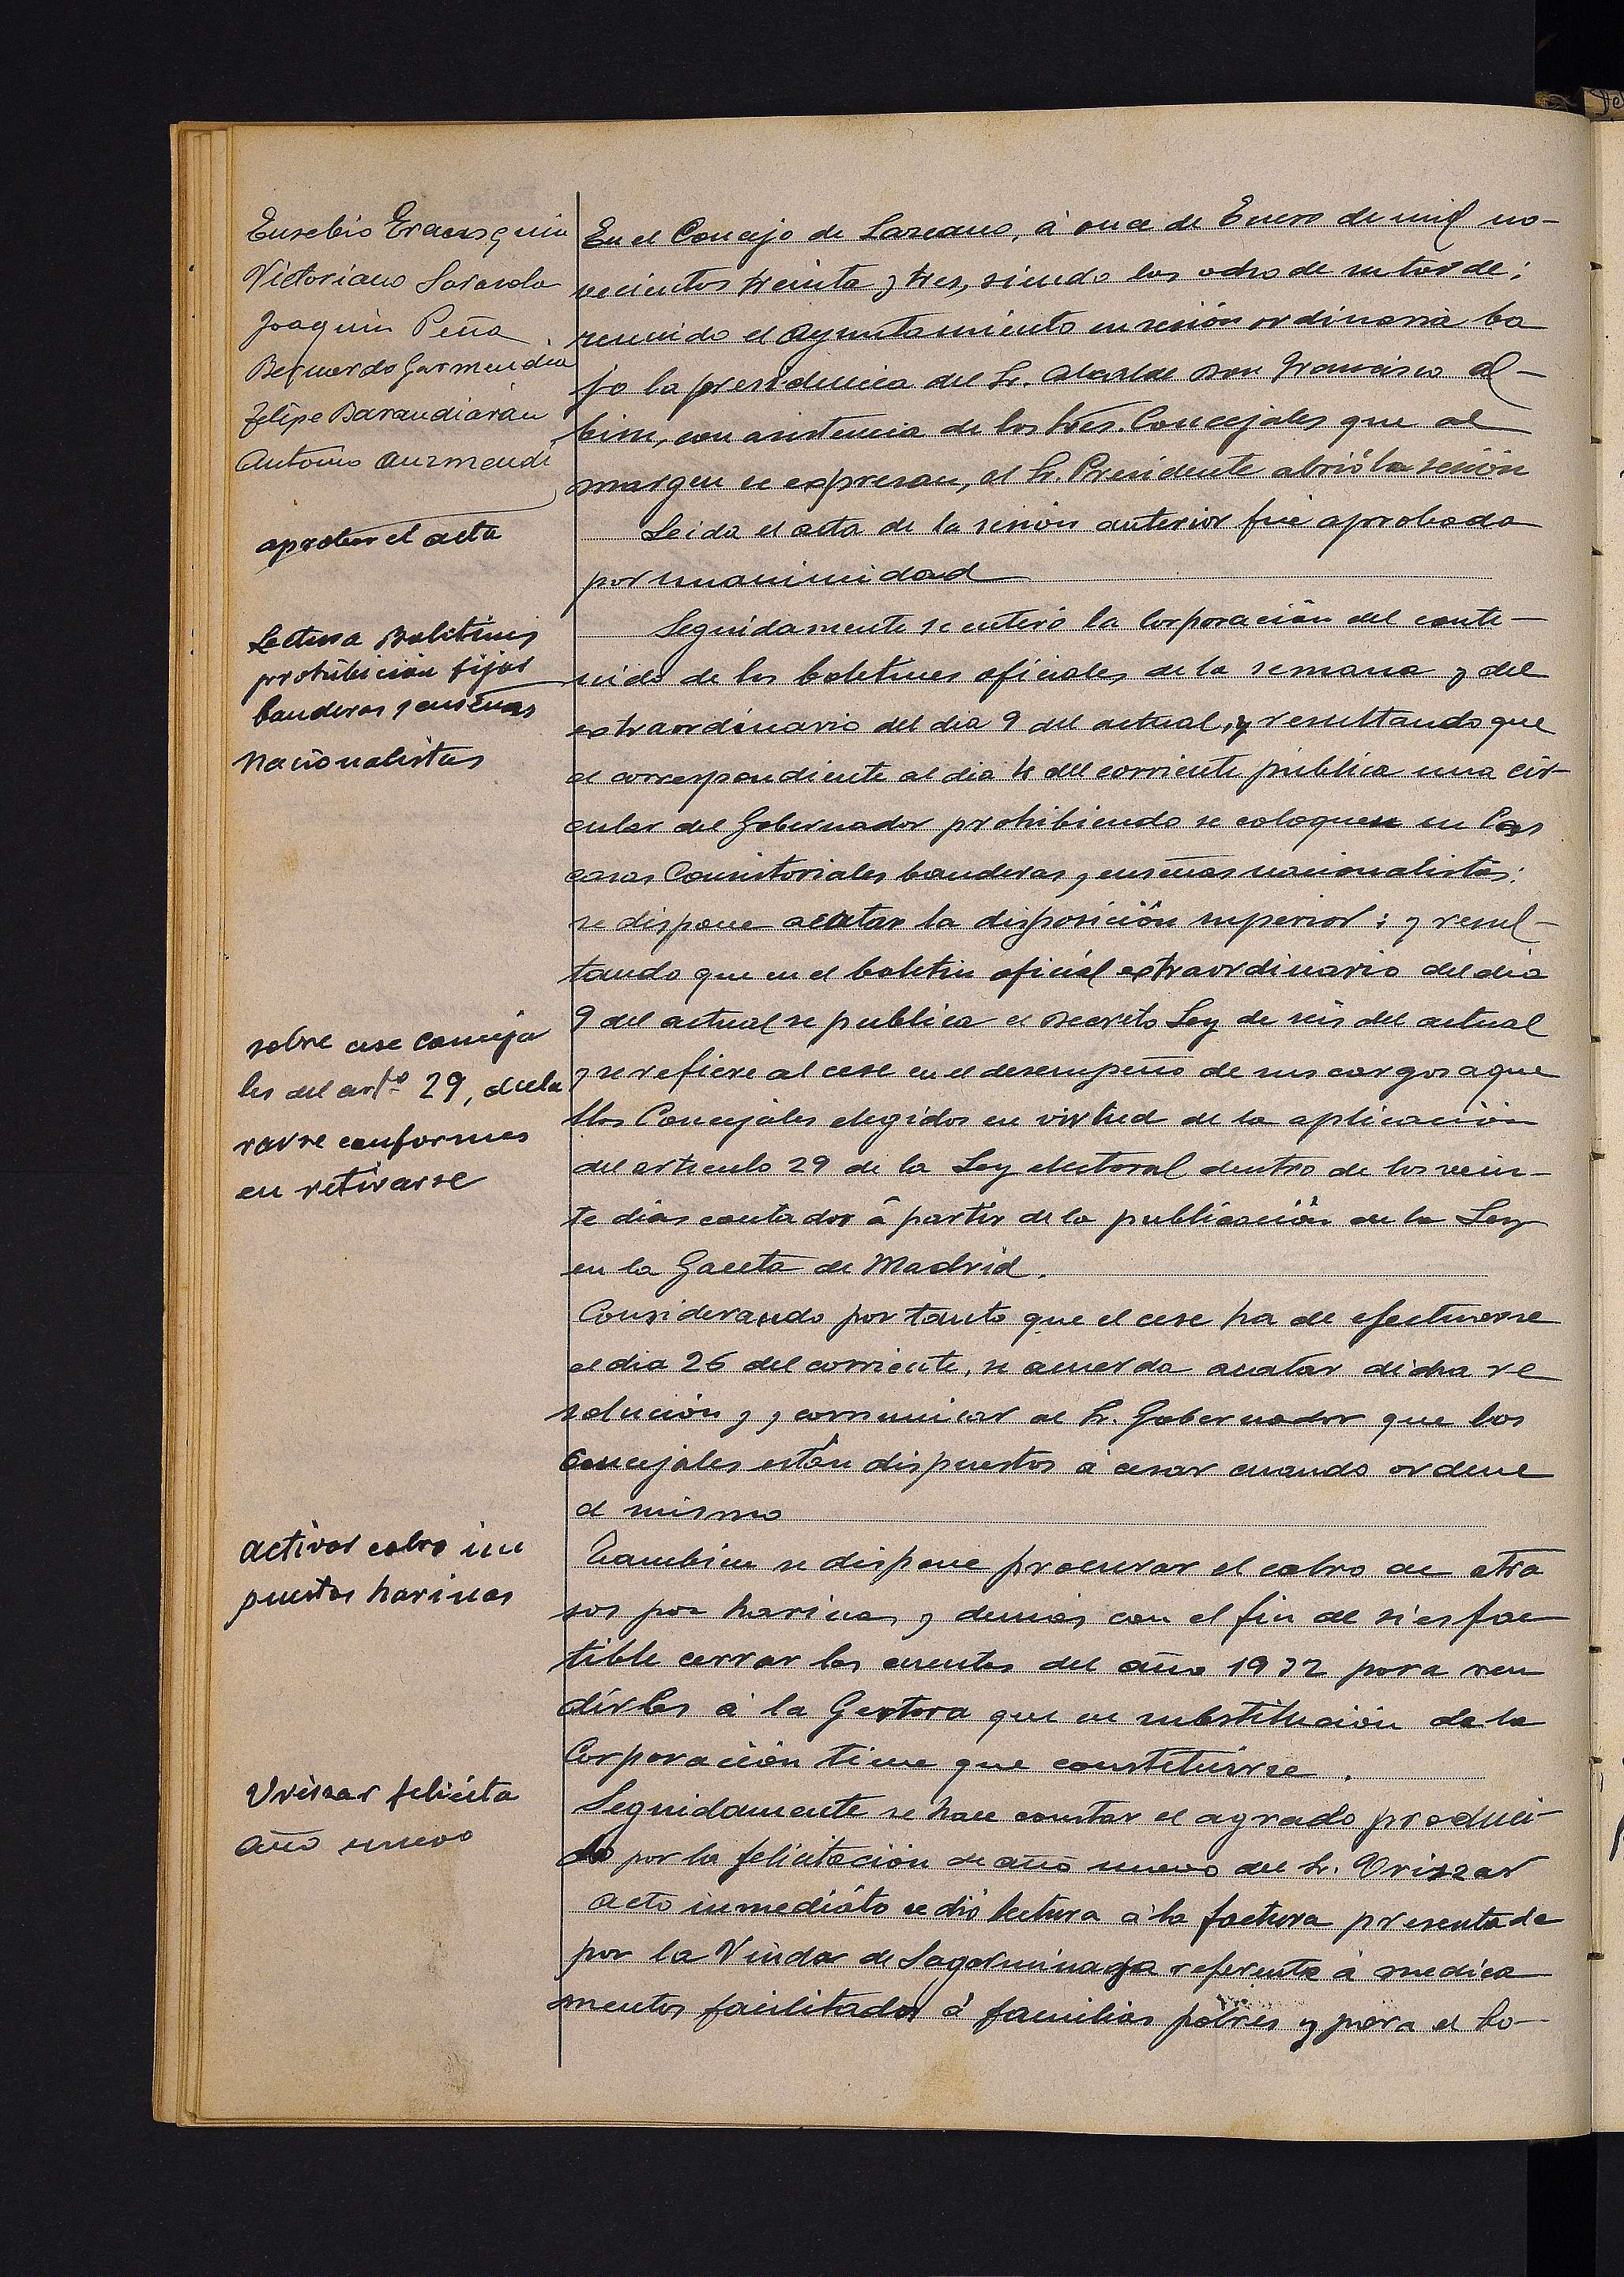 Eusebio Erausquin
Victoriano Sarasola
Joaquin Peña
Bernardo Garmendia
Felipe Barandiarán
Antonio Auzmendi
aprobar el acta
Lectura Boletines
prohibición fijar
banderas y enseñas
nacionalistas
sobre cese conceja
les del artº 29, decla
rarse conformes
en retirarse
activar cobro im
puestos harinas
Urizar felicita
año nuevo
En el Concejo de Lazcano, á once de Enero de mil no-
vecientos treinta y tres, siendo las ocho de su tarde;
reunido el Ayuntamiento en sesión ordinaria ba
jo la presidencia del Sr. Alcalde Don Francisco Al-
bisu, con asistencia de los Sres. Concejales que al
margen se expresan, el Sr. Presidente abrió la sesión
Leida el acta de la sesión anterior fué aprobada
por unanimidad
Seguidamente se enteró la Corporación del conte-
nido de los boletines oficiales de la semana y del
extraordinario del dia 9 del actual, y resultando que
el correspondiente al dia 4 del corriente publica una cir-
cular del Gobernador prohibiendo se coloquen en las
casas Consistoriales banderas y enseñas nacionalistas;
se dispone acatar la disposición superior: y resul-
tando que en el boletin oficial extraordinario del dia
9 del actual se publica el Decreto Ley de seis del actual
y se refiere al cese en el desempeño de sus cargos aque
llos Concejales elegidos en virtud de la aplicación
del articulo 29 de la Ley electoral dentro de los vein-
te dias contados á partir de la publicación de la Ley
en la Gaceta de Madrid.
Considerando por tanto que el cese ha de efectuarse
el dia 26 del corriente, se acuerda acatar dicha re
solución y, comunicar al Sr. Gobernador que los
Concejales están dispuestos á cesar cuando ordene
el mismo
Tambien se dispone procurar el cobro de atra
sos por harinas y demás con el fin de si es fac
tible cerrar las cuentas del año 1932 para ren
dirles á la Gestora que en substitución de la
Corporación tiene que constituirse.
Seguidamente se hace constar el agrado produci-
do por la felicitación de año nuevo del Sr. Urizar
Acto inmediáto se dió lectura á la factura presentada
por la Viuda de Sagarminaga referente á medica
mentos facilitados á familias pobres y para el So-